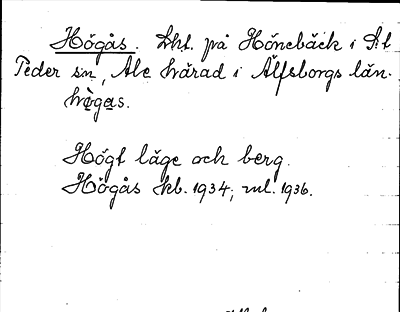 Högås. Lht. på Hönebäck i S:t
Peder sn, Ale härad i Älfsborgs län.
hògas.
Högt läge och berg.
Högås kb. 1934; ml. 1936.